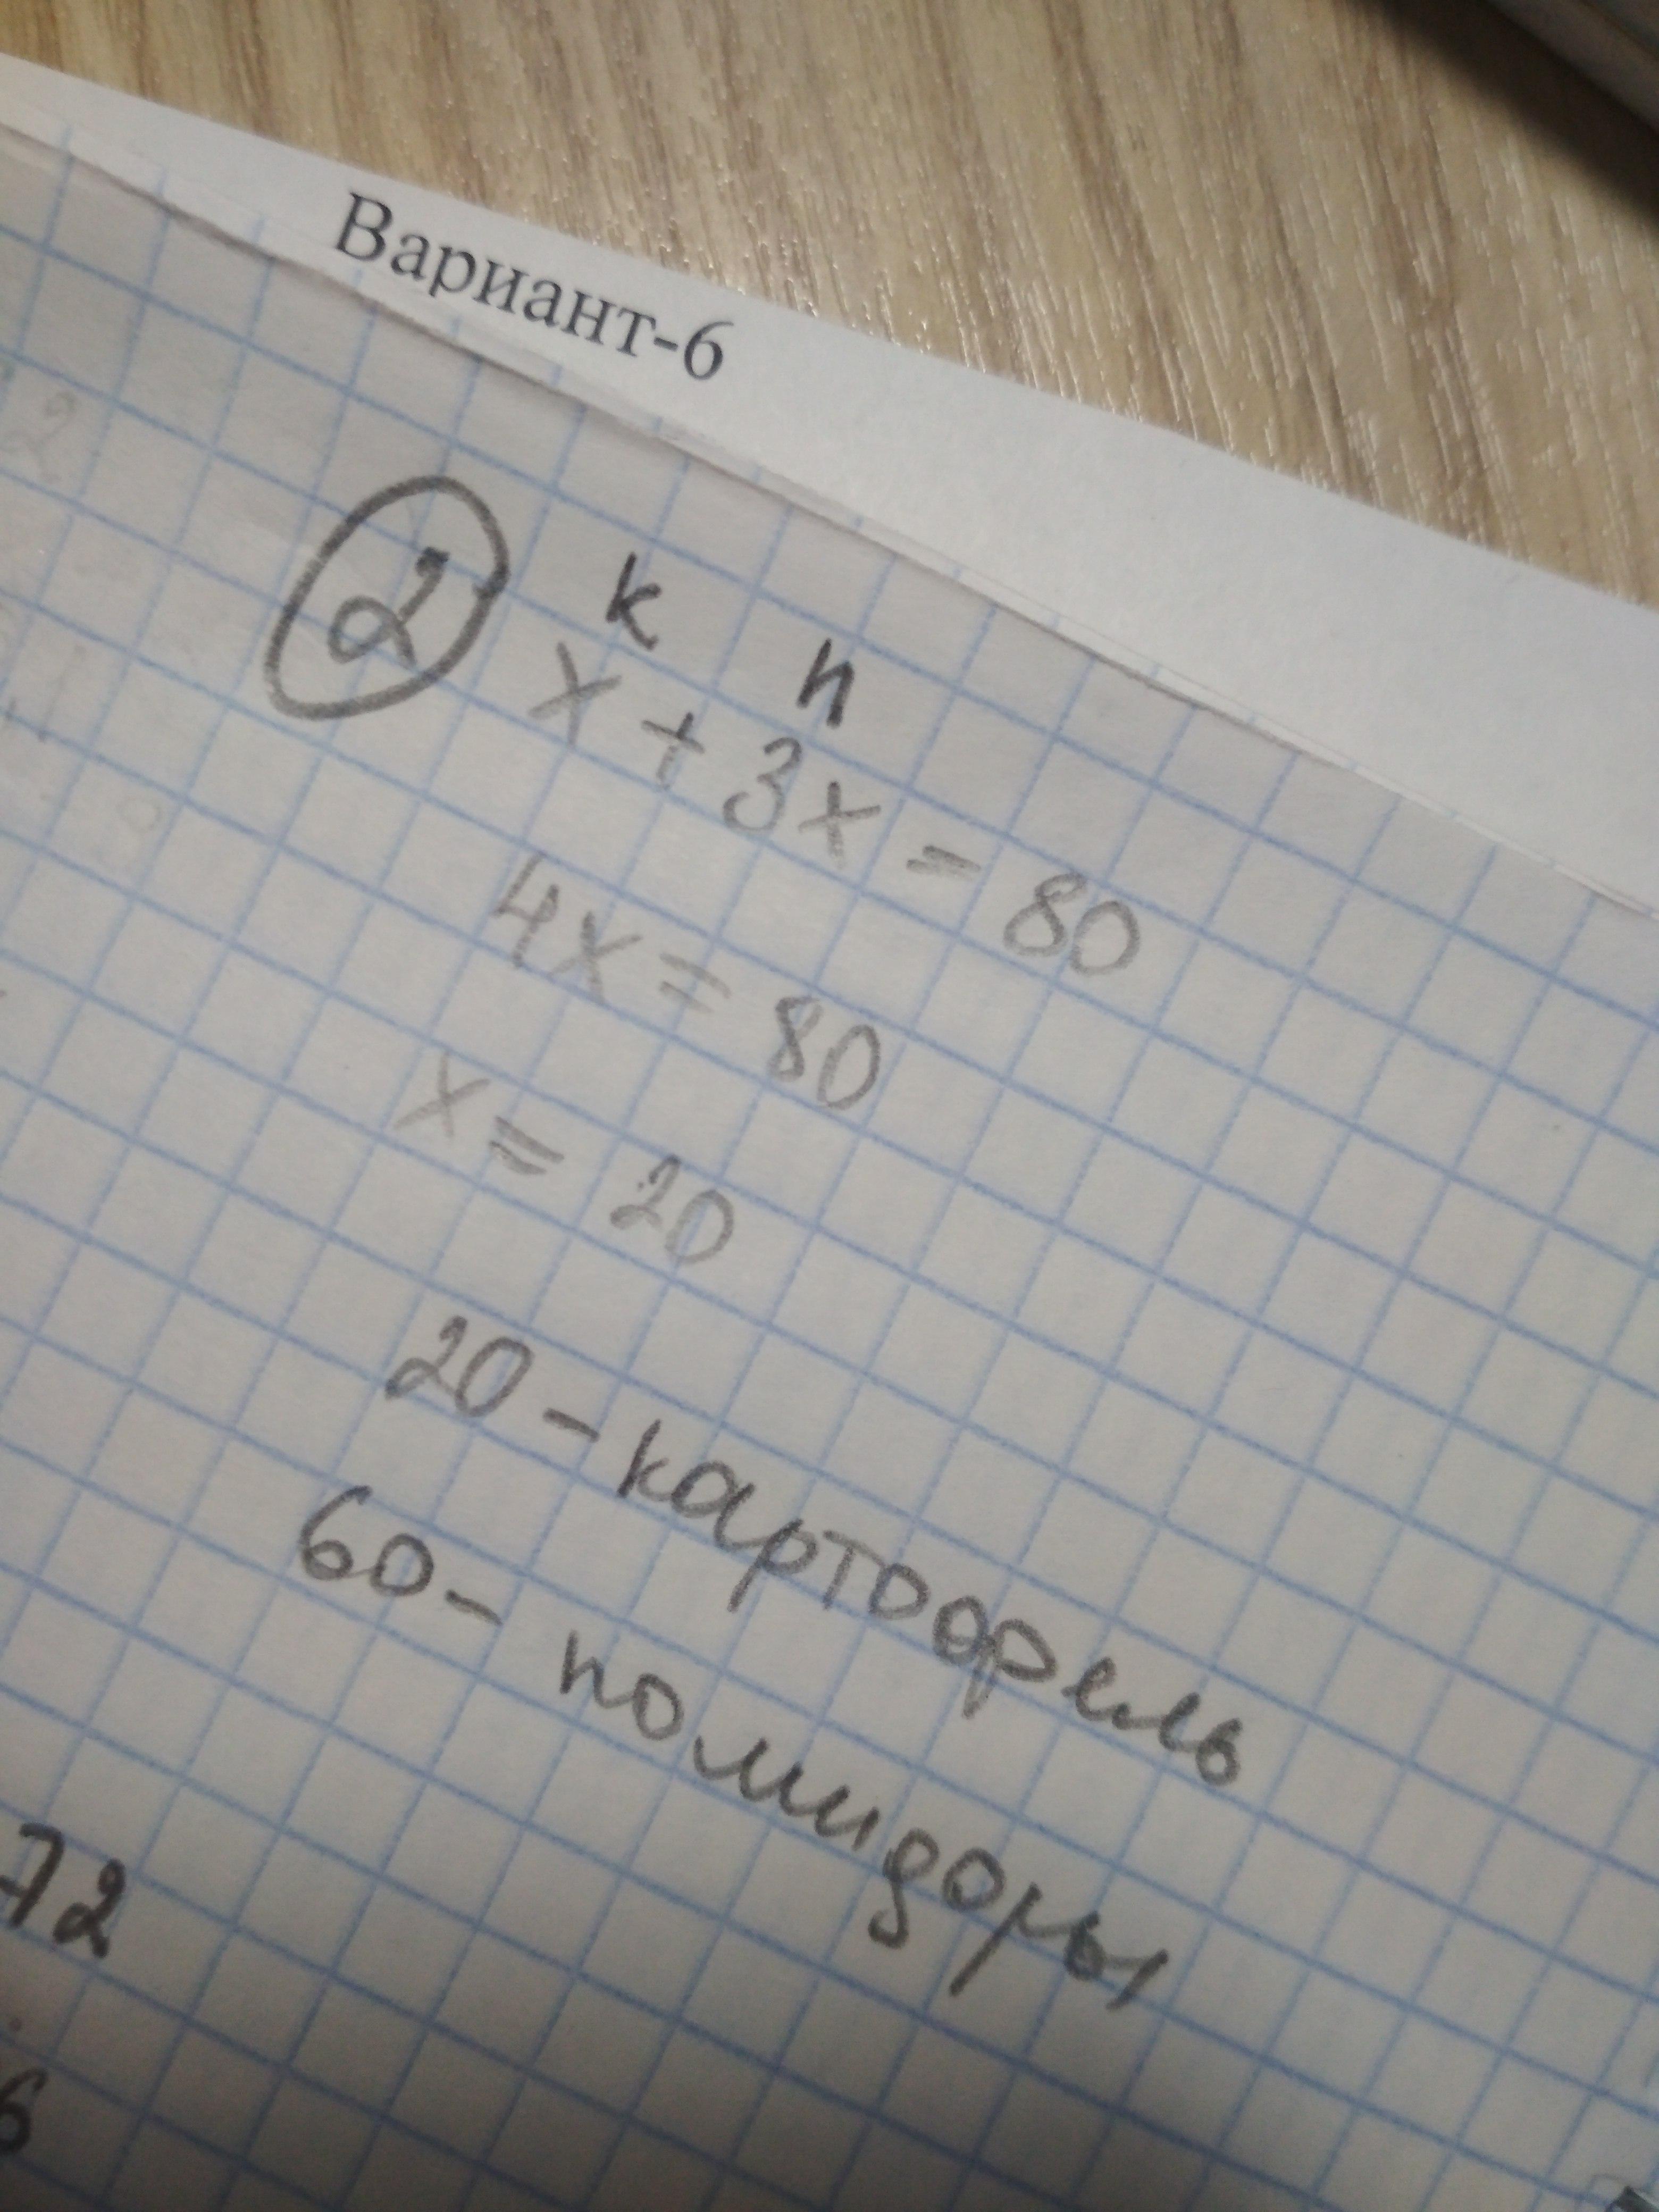 Вариант-6
2
к п
x + 3x = 80
4x = 80
x = 20
20 - картофель
60 - помидоры
72
6